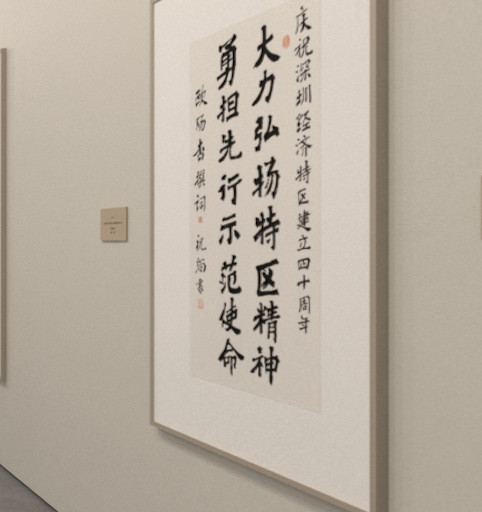 庆祝深圳经济特区建立四十周年
大力弘扬特区精神
勇担先行示范使命
欧阳
撰词
书